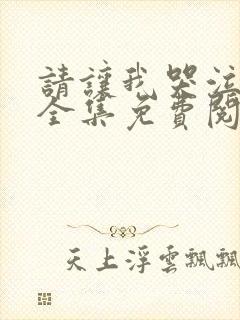 請讓我哭泣
全集免費閱
天上浮雲飄飄